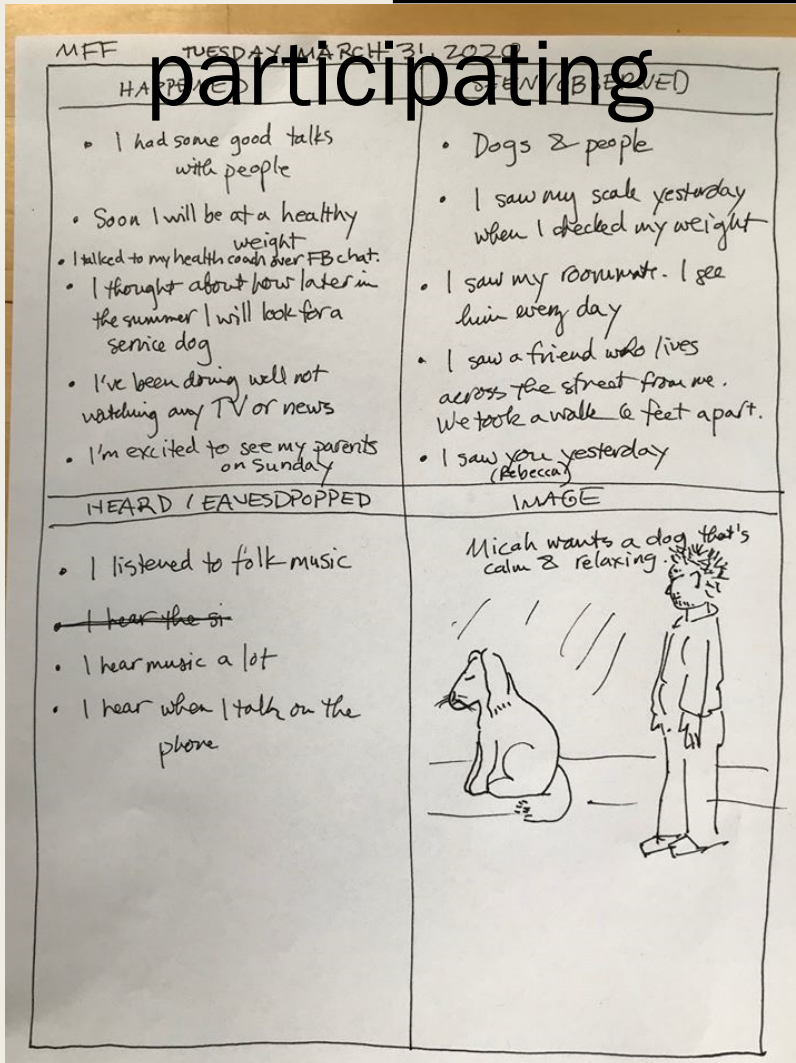 MFF TUESDAY MARCH 31, 2020
participating
HAPPENED
• I had some good talks
with people
• Soon I will be at a healthy
weight
• I talked to my health coach over FB chat.
• I thought about how later in
the summer I will look for a
service dog
• I've been doing well not
watching any TV or news
• I'm excited to see my parents
on Sunday
SEEN/OBSERVED
• Dogs & people
• I saw my scale yesterday
when I checked my weight
• I saw my roommate. I see
him every day
• I saw a friend who lives
across the street from me.
We took a walk 6 feet apart.
• I saw you yesterday
(Rebecca)
HEARD / EAVESDPOPPED
• I listened to folk music
• I hear the si
• I hear music a lot
• I hear when I talk on the
phone
IMAGE
Micah wants a dog that's
calm & relaxing.